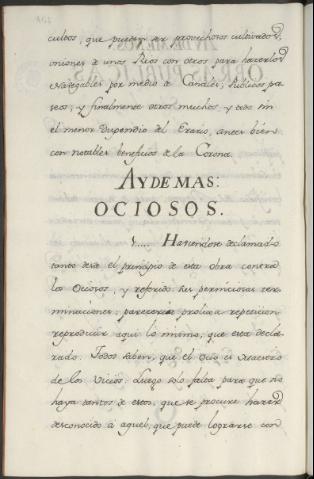 cultos, que pueden ser provechosos cultivados,
uniones de unos Rios con otros para hacerlos
navegables por medio de Canales, Publicos pa
seos; y finalmente otros muchos y todo sin
el menor Dispendio del Erario, antes bien
con notables beneficios de la Corona.
AY DE MAS:
OCIOSOS.
§.... Haviendose declamado
tanto desde el principio de esta obra contra
los Ociosos, y referido sus perniciosas ter-
minaciones, pareceria prolixa repeticion
reproducir aqui lo mismo, que esta decla
rado. Todos saben, que el Ocio es Maestro
de los Vicios. Luego solo falta para que no
haya tantos de estos, que se procure hacer
desconocido à aquel, que puede lograrse con